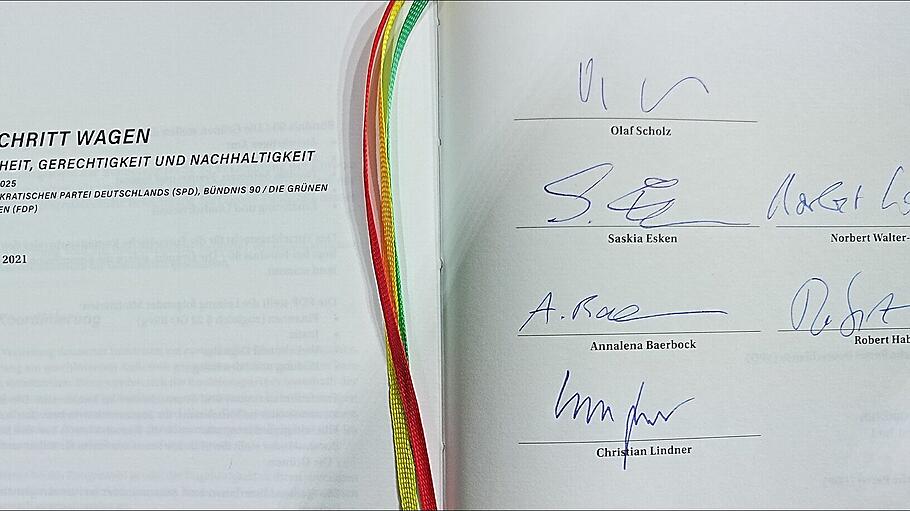 CHRITT WAGEN
HEIT, GERECHTIGKEIT UND NACHHALTIGKEIT
025
KRATISCHEN PARTEI DEUTSCHLANDS (SPD), BÜNDNIS 90 / DIE GRÜNEN
EN (FDP)
2021
Olaf Scholz
S. Esken
Saskia Esken
Norbert
Norbert Walter-
A. Bae
Annalena Baerbock
Robert Hab
Christian Lindner